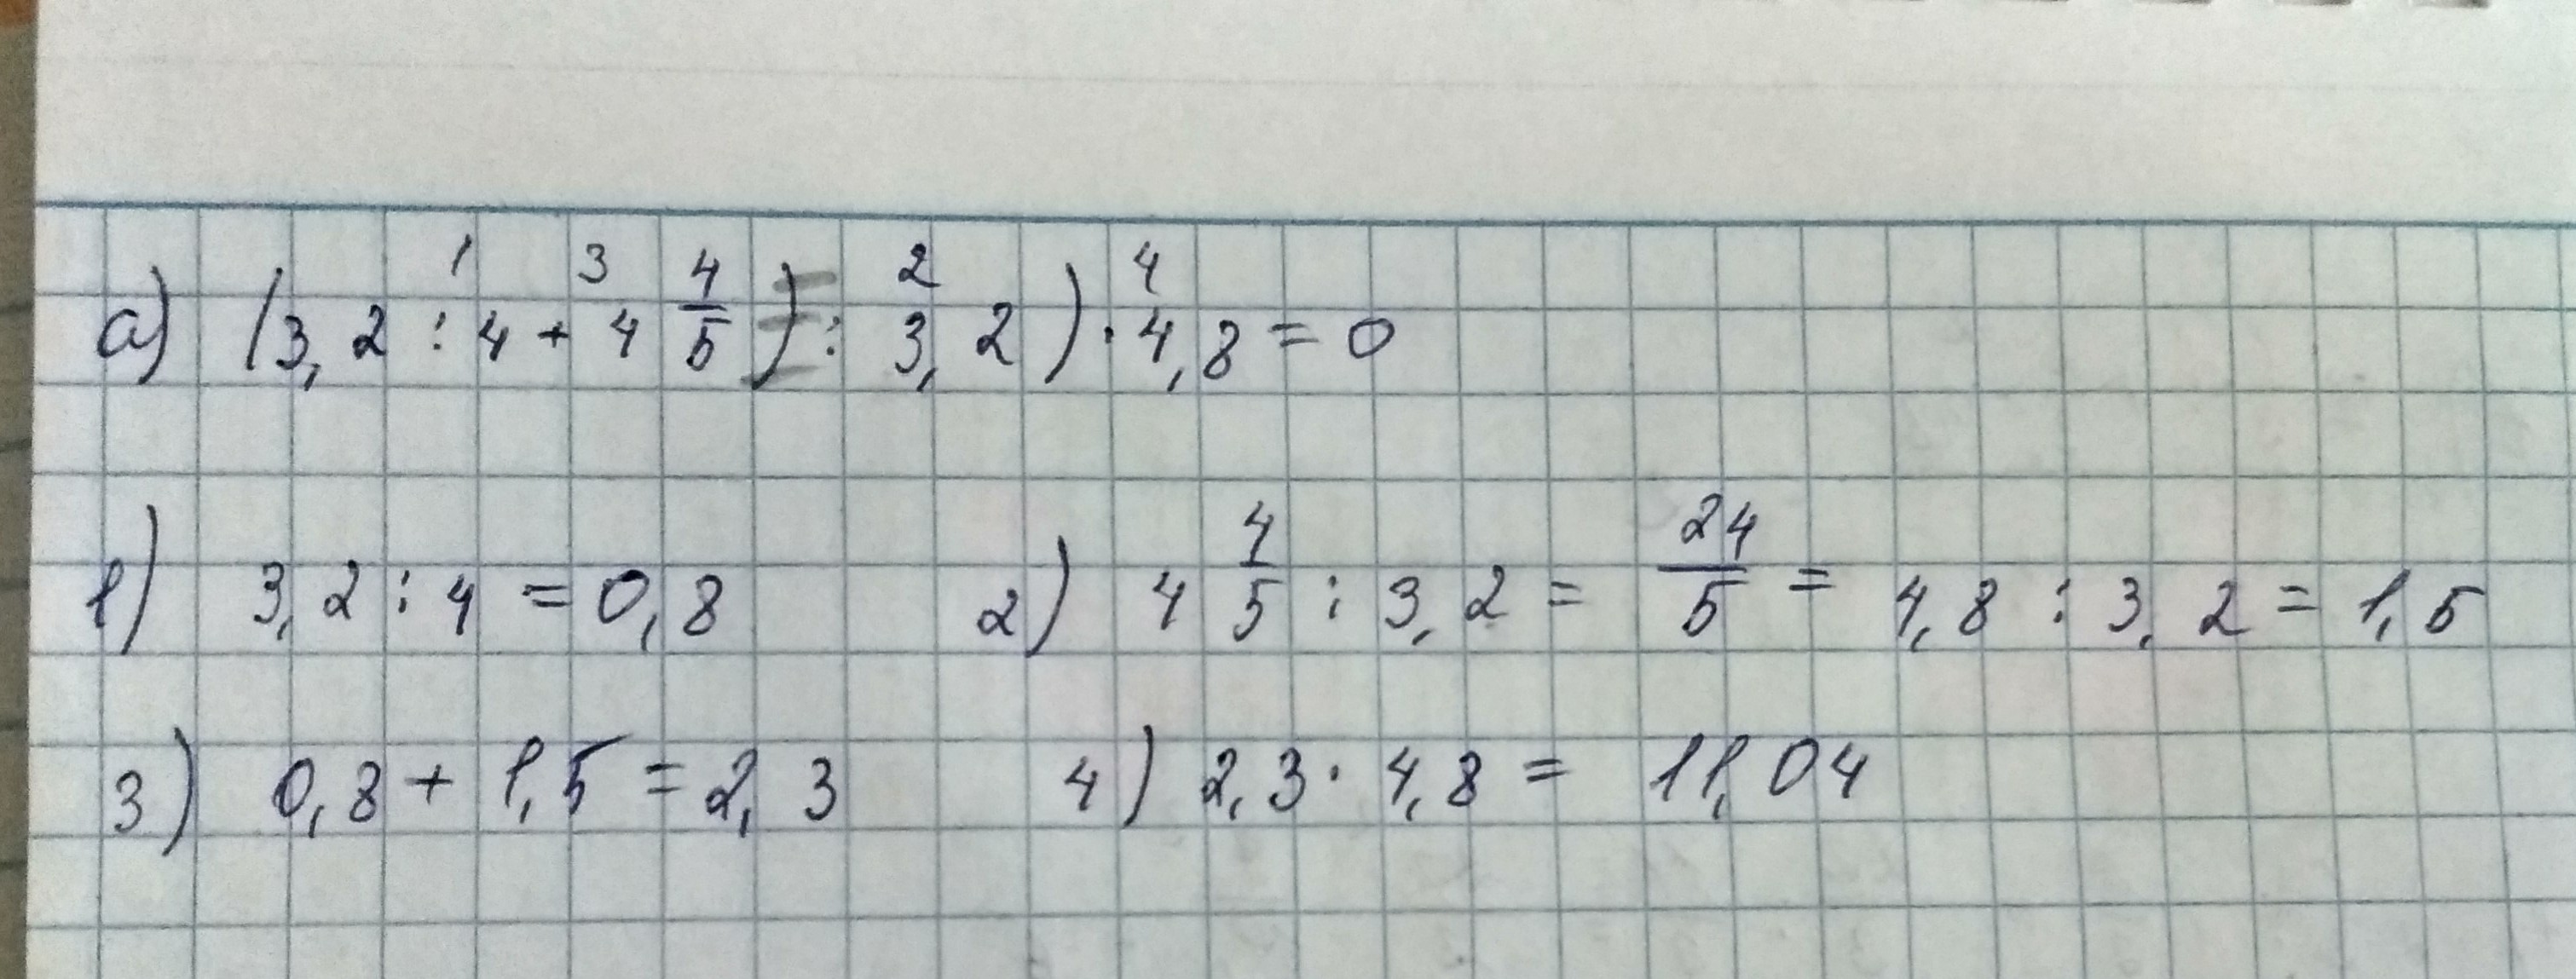 а) (3,2 : 4 + 4 4/5) : 3,2) · 4,8 = 0
1 3 2 4
1) 3,2 : 4 = 0,8 2) 4 4/5 : 3,2 = 24/5 = 4,8 : 3,2 = 1,5
3) 0,8 + 1,5 = 2,3 4) 2,3 · 4,8 = 11,04